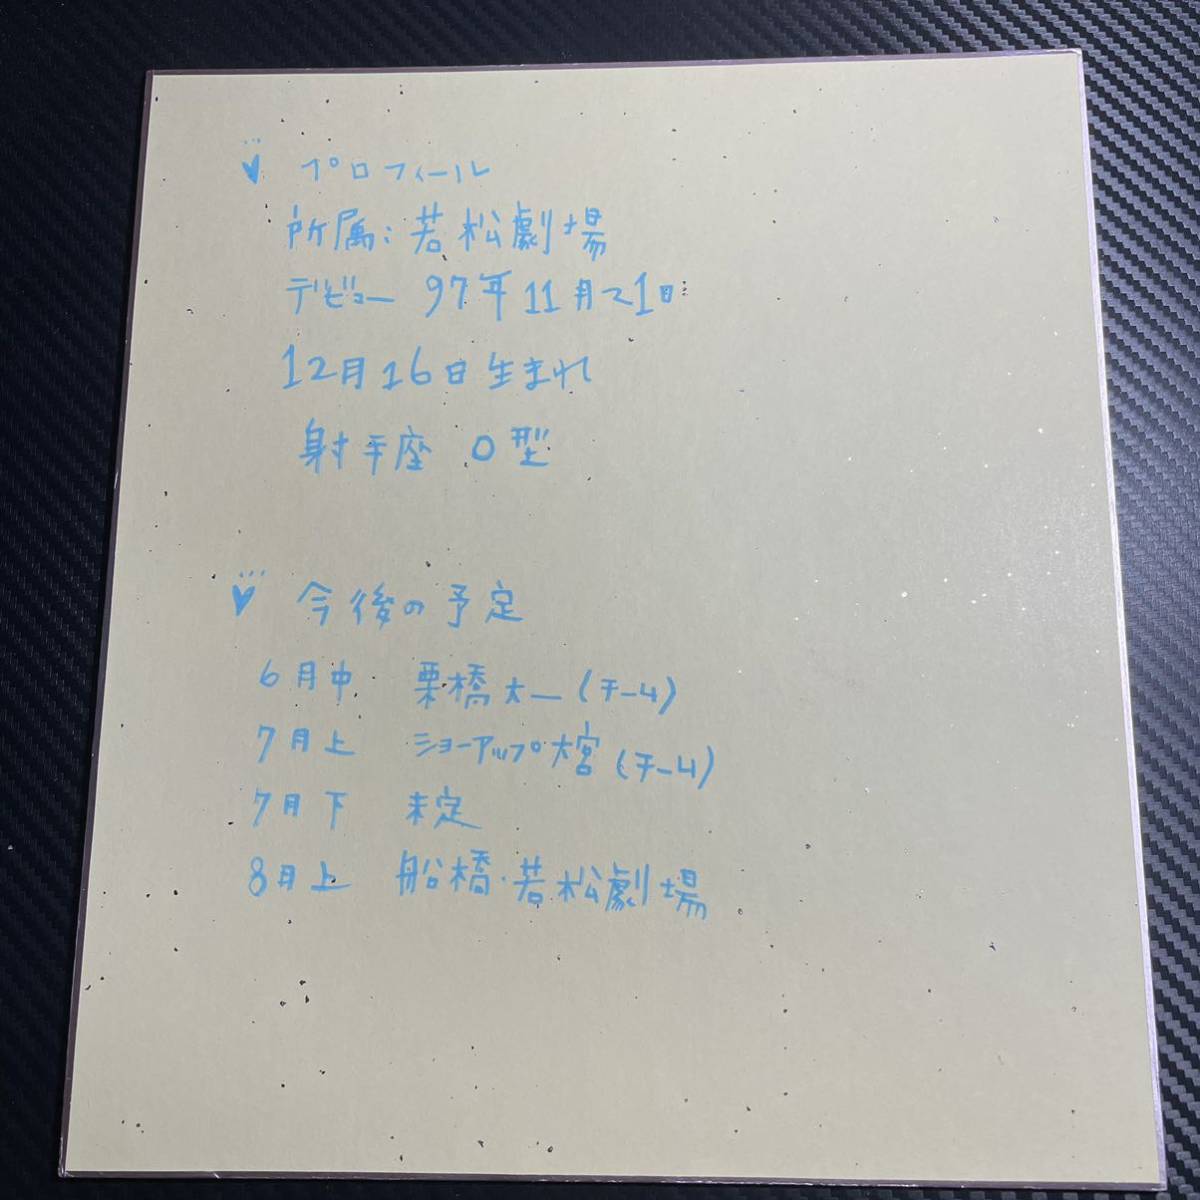 プロフィール
所属:若松劇場
デビュー 97年11月21日
12月16日生まれ
射手座 O型
今後の予定
6月中 栗橋大一(チーム)
7月上 ショーアップ大宮(チーム)
7月下 未定
8月上 船橋・若松劇場